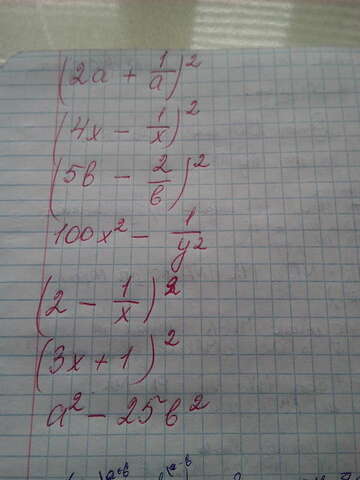 (2a + 1/a)²
(4x - 1/x)²
(5b - 2/b)²
100x² - 1/y²
(2 - 1/x)²
(3x + 1)²
a² - 25b²